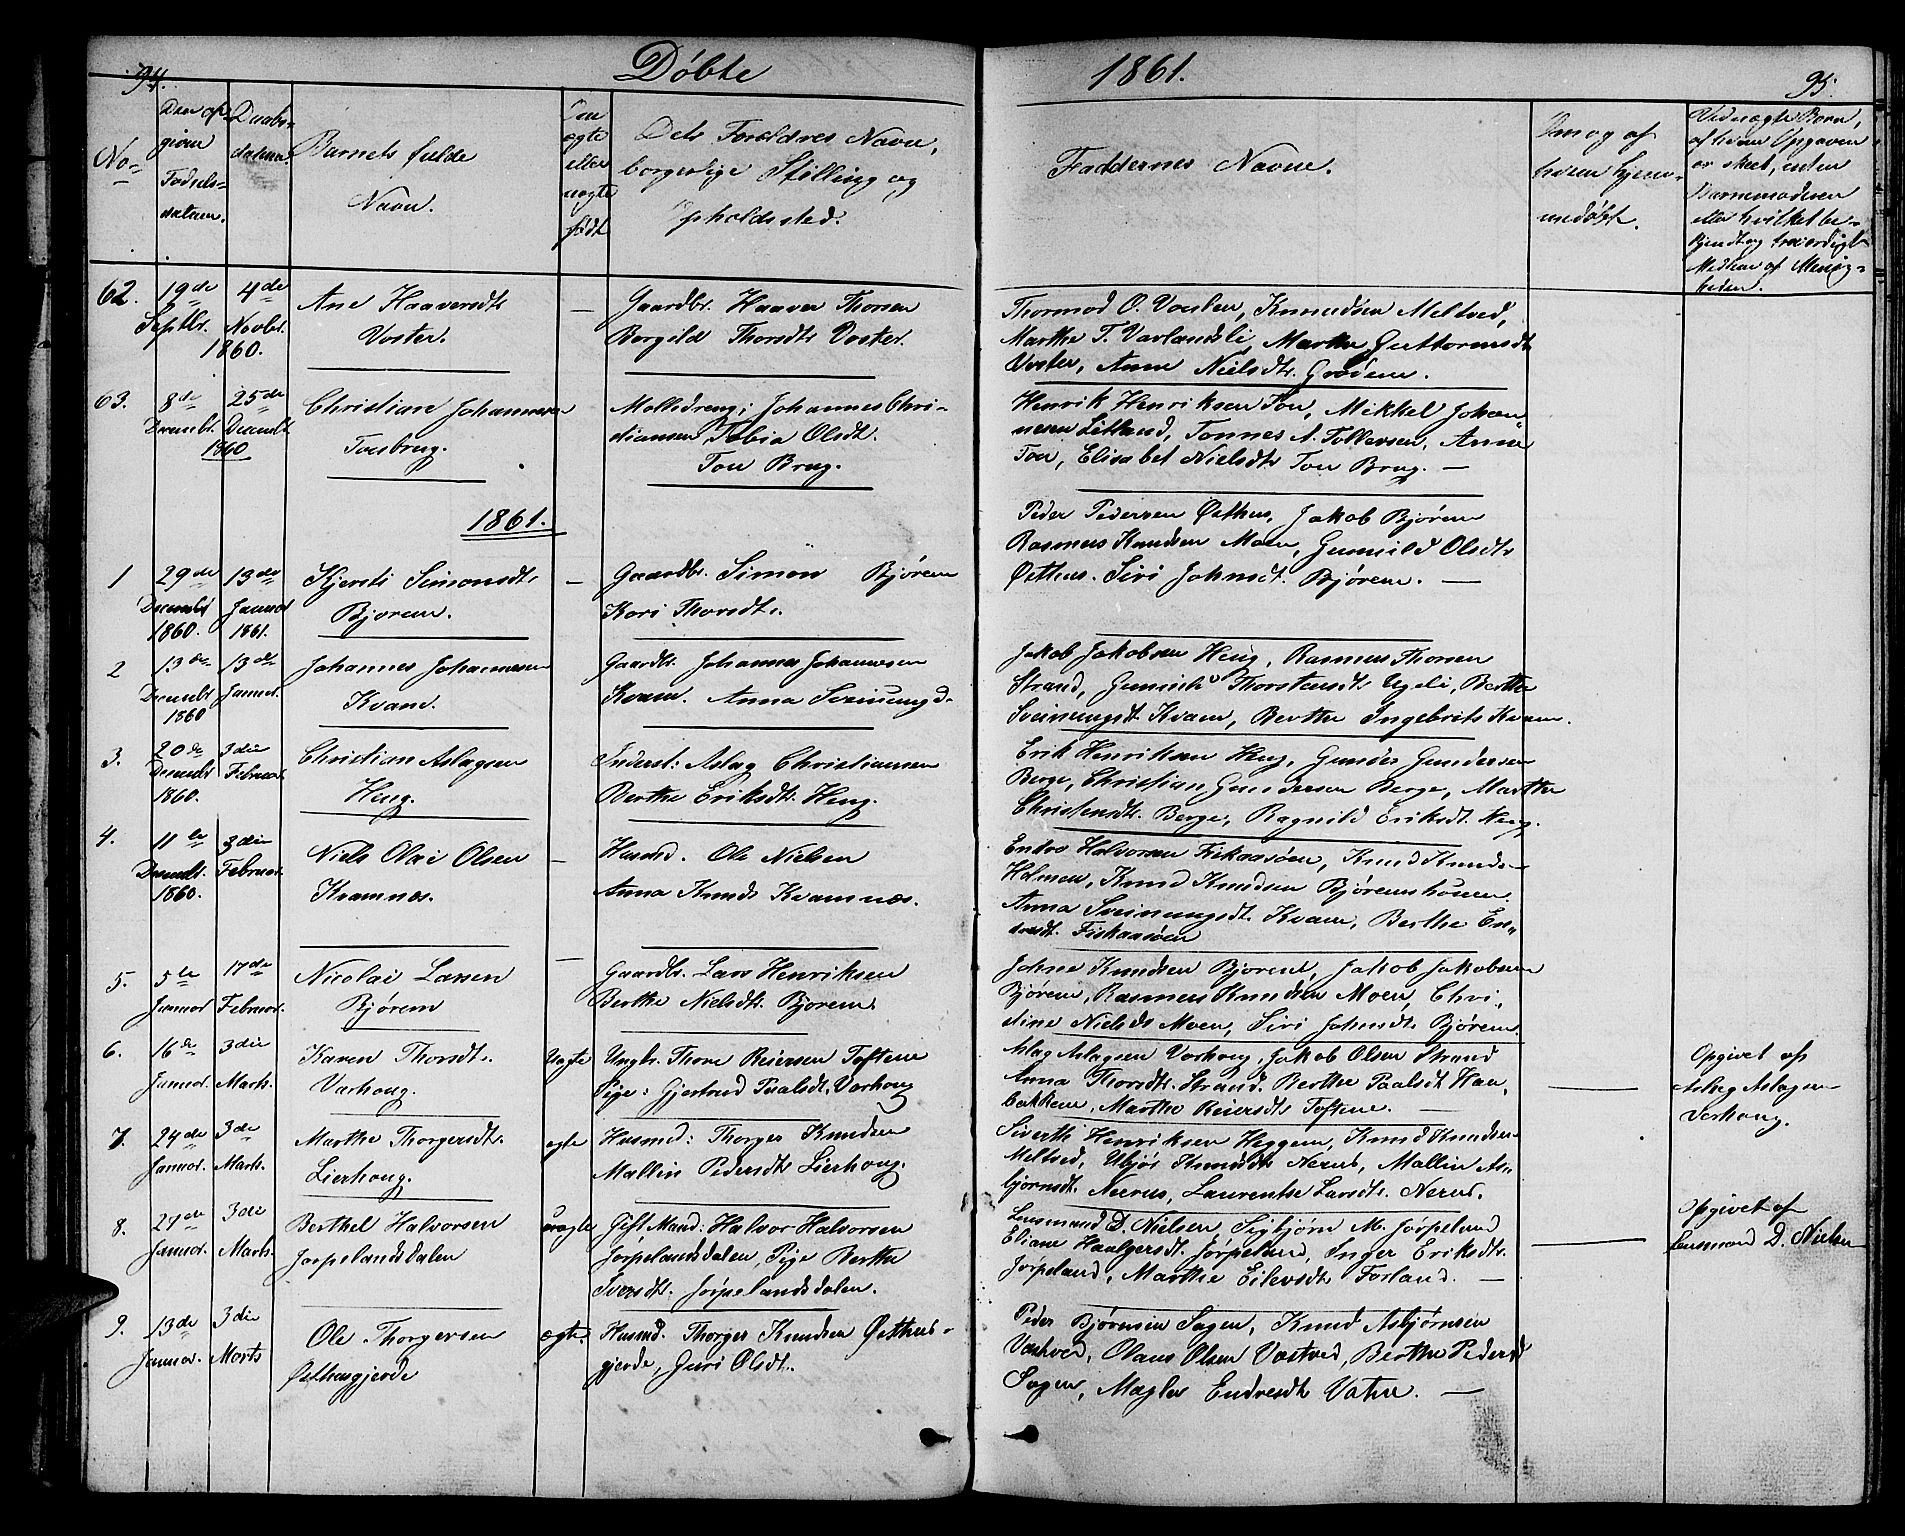 94.
Døbte
1861.
95.
No
Den op-
given
Fødsels-
datum.
Daabs-
datum.
Barnets fulde
Navn.
Om
ægte
eller
uægte
født
Dets Forældres Navne,
borgerlige Stilling og
Opholdssted.
Faddernes Navne.
Om og af
hvem hjem-
medøbt.
Ved uægte Børn,
af hvem Opgaven
er skeet, enten
Barnemoderen
eller hvilket be-
kjendt og troværdigt
Medlem af Menig-
heden.
62.
19de
Septbr.
4de
Novbr.
1860.
Ane Haaversdt.
Voster.
—
Gaardbr. Haaver Thorsen
Borgild Thorsdt. Voster.
Thormod O. Voster, Knudsen Meltved,
Marthe T. Varlandsli, Marthe Guttormsdt
Voster, Anne Nielsdt. Grødem.
63.
8de
Decembr.
25de
Decembr.
1860
Christian Johannesen
Toubrug.
Mølledreng: Johannes Chri-
stiansen Tobia Olsdt.
Tou Brug.
Henrik Henriksen Tou, Mikkel Johan-
nesen Letland, Tønnes A. Tollevsen, Anne
Tou, Elisabet Nielsdt. Tou Brug. —
1861.
1
29de
Decembr
1860.
13de
Januar
1861.
Kjersti Simonsdt.
Bjørem.
—
Gaardbr. Simon Bjørem
Kari Thorsdt.
Peder Pedersen Østhus, Jakob Bjørem
Rasmus Knudsen Moen, Gunnild Olsdt.
Østhus. Siri Johnsdt. Bjørem. —
2
13de
Decembr
1860
13de
Januar.
Johannes Johannesen
Kvam.
Gaardbr. Johannes Johannesen
Kvam. Anna Sveinungsd.
Jakob Jakobsen Heng, Rasmus Thorsen
Strand, Gunnild Thorstensdt. Ugeli, Berthe
Sveinungsdt. Kvam, Berthe Ingebrits Kvam.
3.
20de
Decembr
1860.
3die
Februar.
Christian Aslagsen
Heng.
Inderst: Aslag Christiansen
Berthe Eriksdt. Heng.
Erik Henriksen Heng, Gunder Gundersen
Berge, Christian Gundersen Berge, Marthe
Christensdt. Berge, Ragnild Eriksdt. Heng.
4.
11te
Decembr.
1860.
3die
Februar.
Niels Olai Olsen
Kvamnæs.
—
Husmd. Ole Nielsen
Anna Knuds Kvamnæs.
Endre Halvorsen Fiskaasøen, Knud Knuds-
Holmen, Knud Knudsen Bjøremshouen.
Anna Sveinungsdt. Kvam, Berthe En-
dresdt. Fiskaasøen
5.
5te
Januar
17de
Februar.
Nicolai Larsen
Bjørem
—
Gaardbr. Lars Henriksen
Berthe Nielsdt. Bjørem.
Johne Knudsen Bjørem, Jakob Jakobsen
Bjørem, Rasmus Knudsen Moen, Chri-
stine Niels d. Moen, Siri Johnsdt. Bjørem.
6.
16de
Januar.
3die
Marts.
Karen Thorsdt.
Varhoug.
Uægte
Ungkr. Thore Reiersen Toftene
Pige: Gjertrud Paalsdt. Varhoug
Aslag Aslagsen Varhoug, Jakob Olsen Strand
Anna Thorsdt. Strand. Berthe Paalsdt Hau-
bakken, Marthe Reiersdt. Toftene. —
Opgivet af
Aslag Aslagsen
Varhoug.
7.
24de
Januar.
3de
Marts.
Marthe Thorgersdt.
Lierhoug.
ægte
Husmd: Thorger Knudsen
Mallin Pedersdt. Lierhoug.
Siverth Henriksen Heggem, Knud Knudsen
Meltved, Ubjør Knudsdt. Nerus, Mallin As-
bjørnsdt. Nerus, Laurentse Larsdt. Nerus.
8.
27de
Januar.
3die
Marts.
Berthel Halvorsen
Jørpelandsdalen
uægte
Gift Mand: Halvor Halvorsen
Jørpelandsdalen, Pige Berthe
Siversdt. Jørpelandsdalen.
Lensmand D. Nielsen, Sigbjørn M. Jørpeland
Eliane Haalgersdt. Jørpeland, Inger Eriksdt.
Jørpeland, Marthe Eilevsdt. Førland. —
Opgivet af
Lensmand D. Nielsen
9.
13de
Januar.
3die
Marts
Ole Thorgersen
Østhusgjerde
ægte.
Husmd. Thorger Knudsen Østhus-
gjerde, Guri Olsdt.
Peder Bjørnsen Sagen, Knud Asbjørnsen
Vostved, Olaus Olsen Vostved, Berthe Pedersd
Sagen, Magler Endresdt Vatne. —